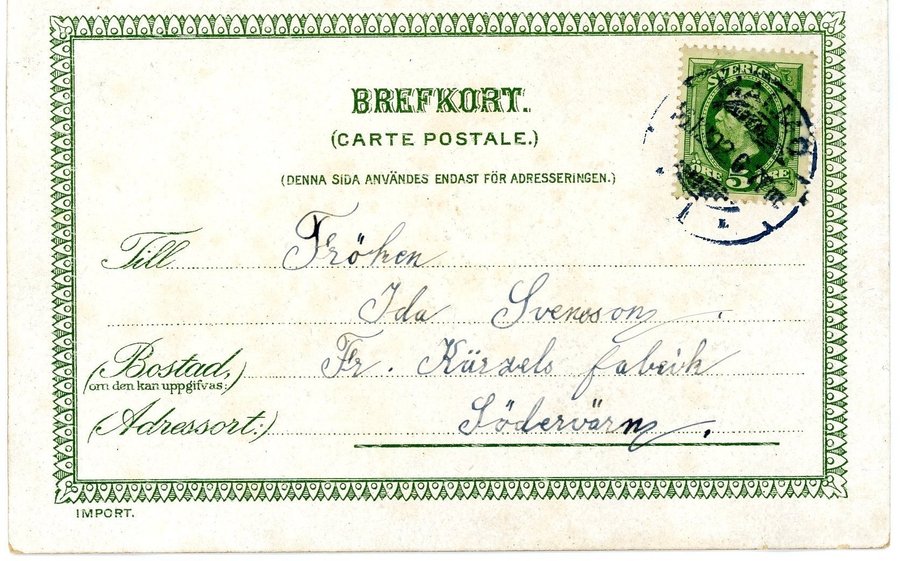 BREFKORT.
(CARTE POSTALE.)
(DENNA SIDA ANVÄNDES ENDAST FÖR ADRESSERINGEN.)
SVERIGE
ÖRE 5 ÖRE
Till Fröken
Ida Svensson,
(Bostad, Fr. Kürzels fabrik
om den kan uppgifvas:)
(Adressort:) Södervärn,
IMPORT.